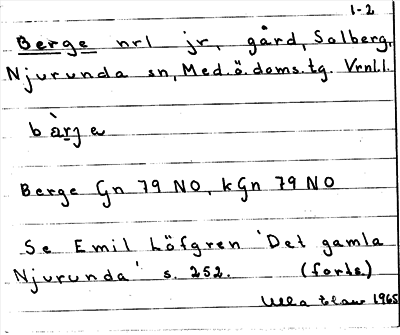 1-2
Berge nrl jr, gård, Solberg,
Njurunda sn, Med.ö.doms.tg. Vrnl.l.
bàrj e
Berge Gn 79 NO, kGn 79 NO
Se Emil Löfgren 'Det gamla
Njurunda' s. 252. (forts.)
Ulla 1965